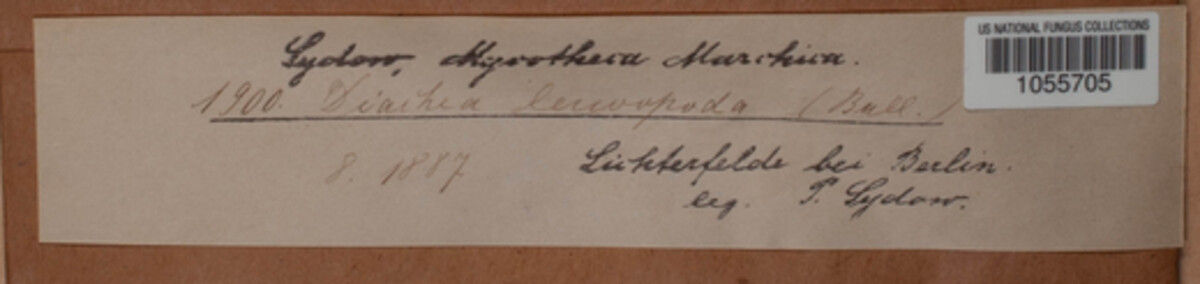 Sydow, Mycotheca Marchica.
1900. Diachea leucopoda (Bull.)
8. 1887
Lichterfelde bei Berlin.
leg. P. Sydow.
US NATIONAL FUNGUS COLLECTIONS
1055705